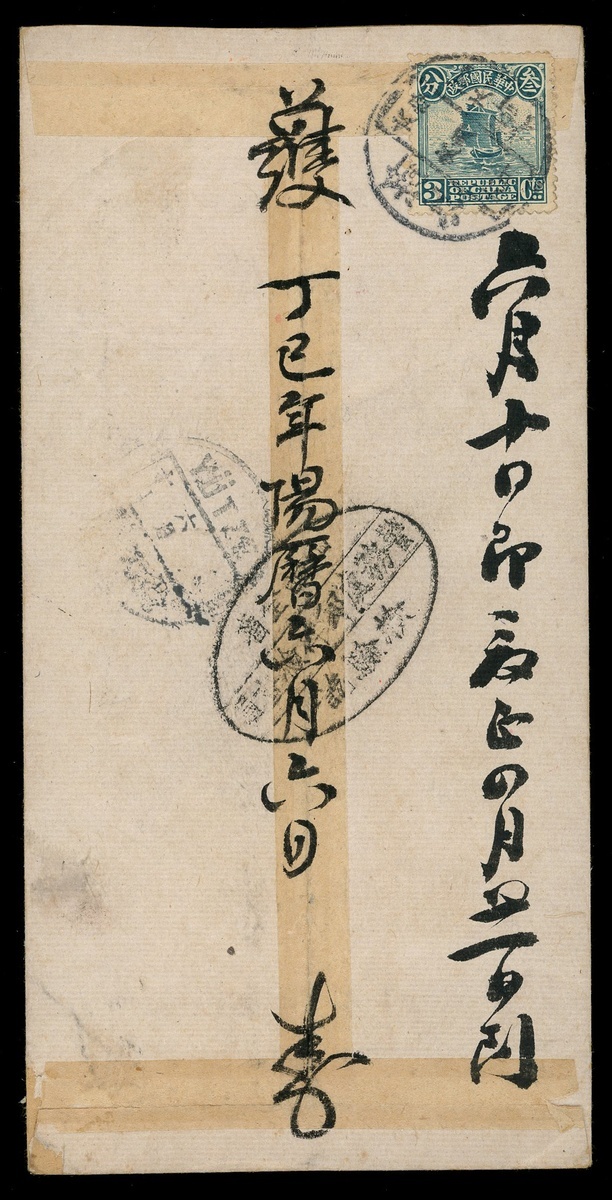 中華民國郵政
叁分
3 REPUBLIC Cts
OF CHINA
POSTAGE
六月十日即夏正四月廿一日到
護 丁巳年陽曆六月六日 壽